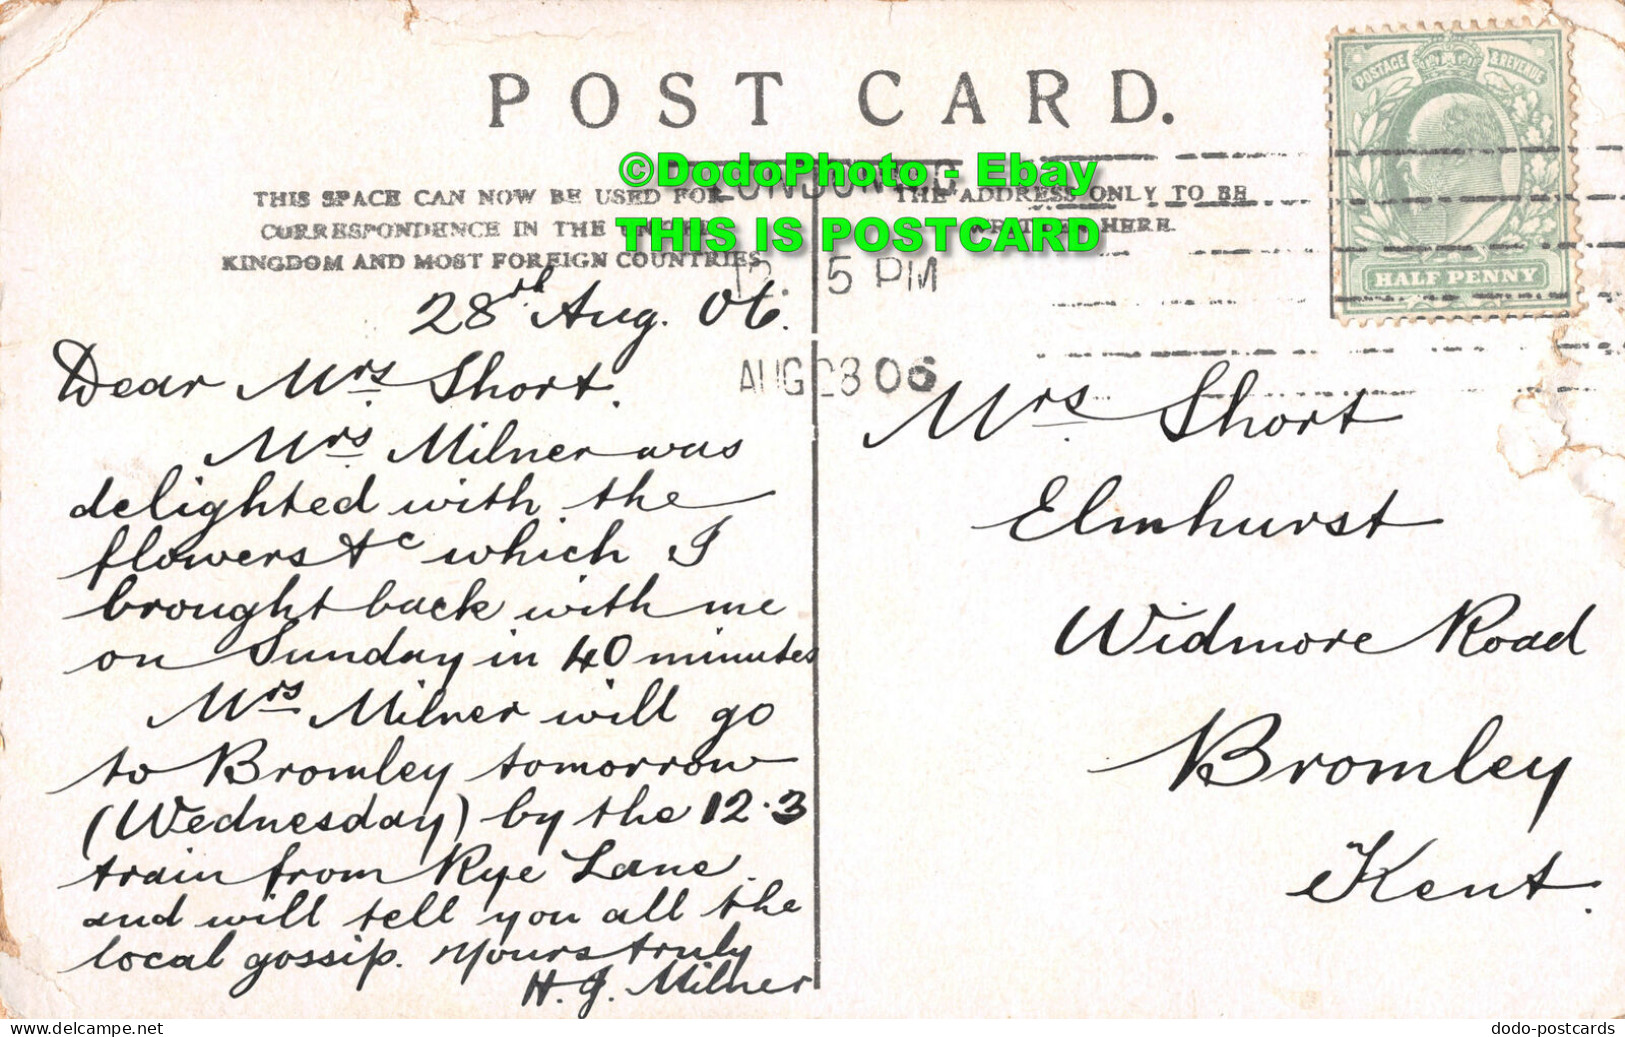 POST CARD.
THIS SPACE CAN NOW BE USED FOR
CORRESPONDENCE IN THE
KINGDOM AND MOST FOREIGN COUNTRIES
THE ADDRESS ONLY TO BE
WRITTEN HERE.
©DodoPhoto - Ebay
THIS IS POSTCARD
POSTAGE & REVENUE
HALF PENNY
5 PM
AUG 28 06
28th Aug. 06.
Dear Mrs Short.
Mrs Milner was
delighted with the
flowers &c which I
brought back with me
on Sunday in 40 minutes
Mrs Milner will go
to Bromley tomorrow
(Wednesday) by the 12.3
train from Rye Lane.
and will tell you all the
local gossip. Yours truly
H. J. Milner
Mrs Short
Elmhurst
Widmore Road
Bromley
Kent.
www.delcampe.net
dodo-postcards